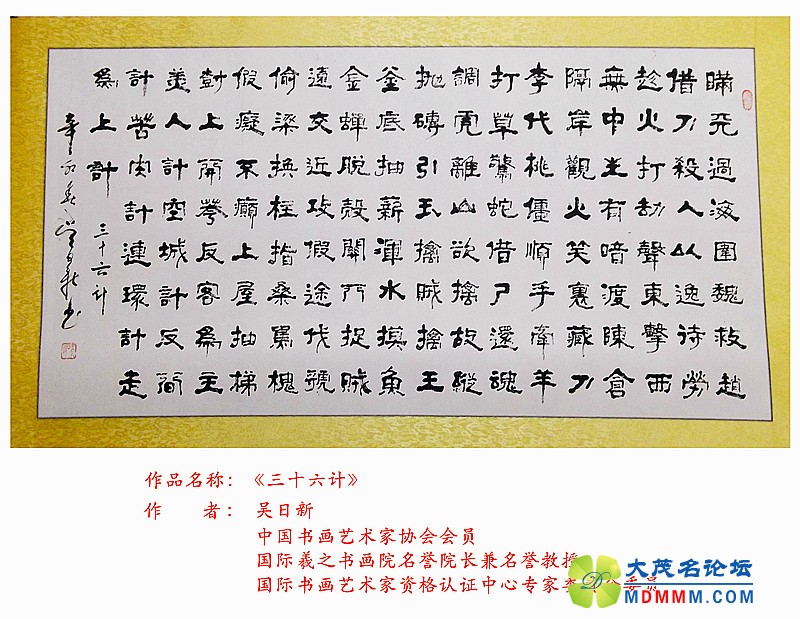 瞞天過海圍魏救趙
借刀殺人以逸待勞
趁火打劫聲東擊西
無中生有暗渡陳倉
隔岸觀火笑裏藏刀
李代桃僵順手牽羊
打草驚蛇借尸還魂
調虎離山欲擒故縱
拋磚引玉擒賊擒王
釜底抽薪渾水摸魚
金蟬脫殼關門捉賊
遠交近攻假途伐虢
偷梁換柱指桑罵槐
假癡不癲上屋抽梯
樹上開花反客爲主
美人計空城計反間
計苦肉計連環計走
爲上計
三十六计
辛卯春吴日新书
作品名称：《三十六计》
作 者：吴日新
中国书画艺术家协会会员
国际羲之书画院名誉院长兼名誉教授
国际书画艺术家资格认证中心专家委员
大茂名论坛
MDMMM.COM